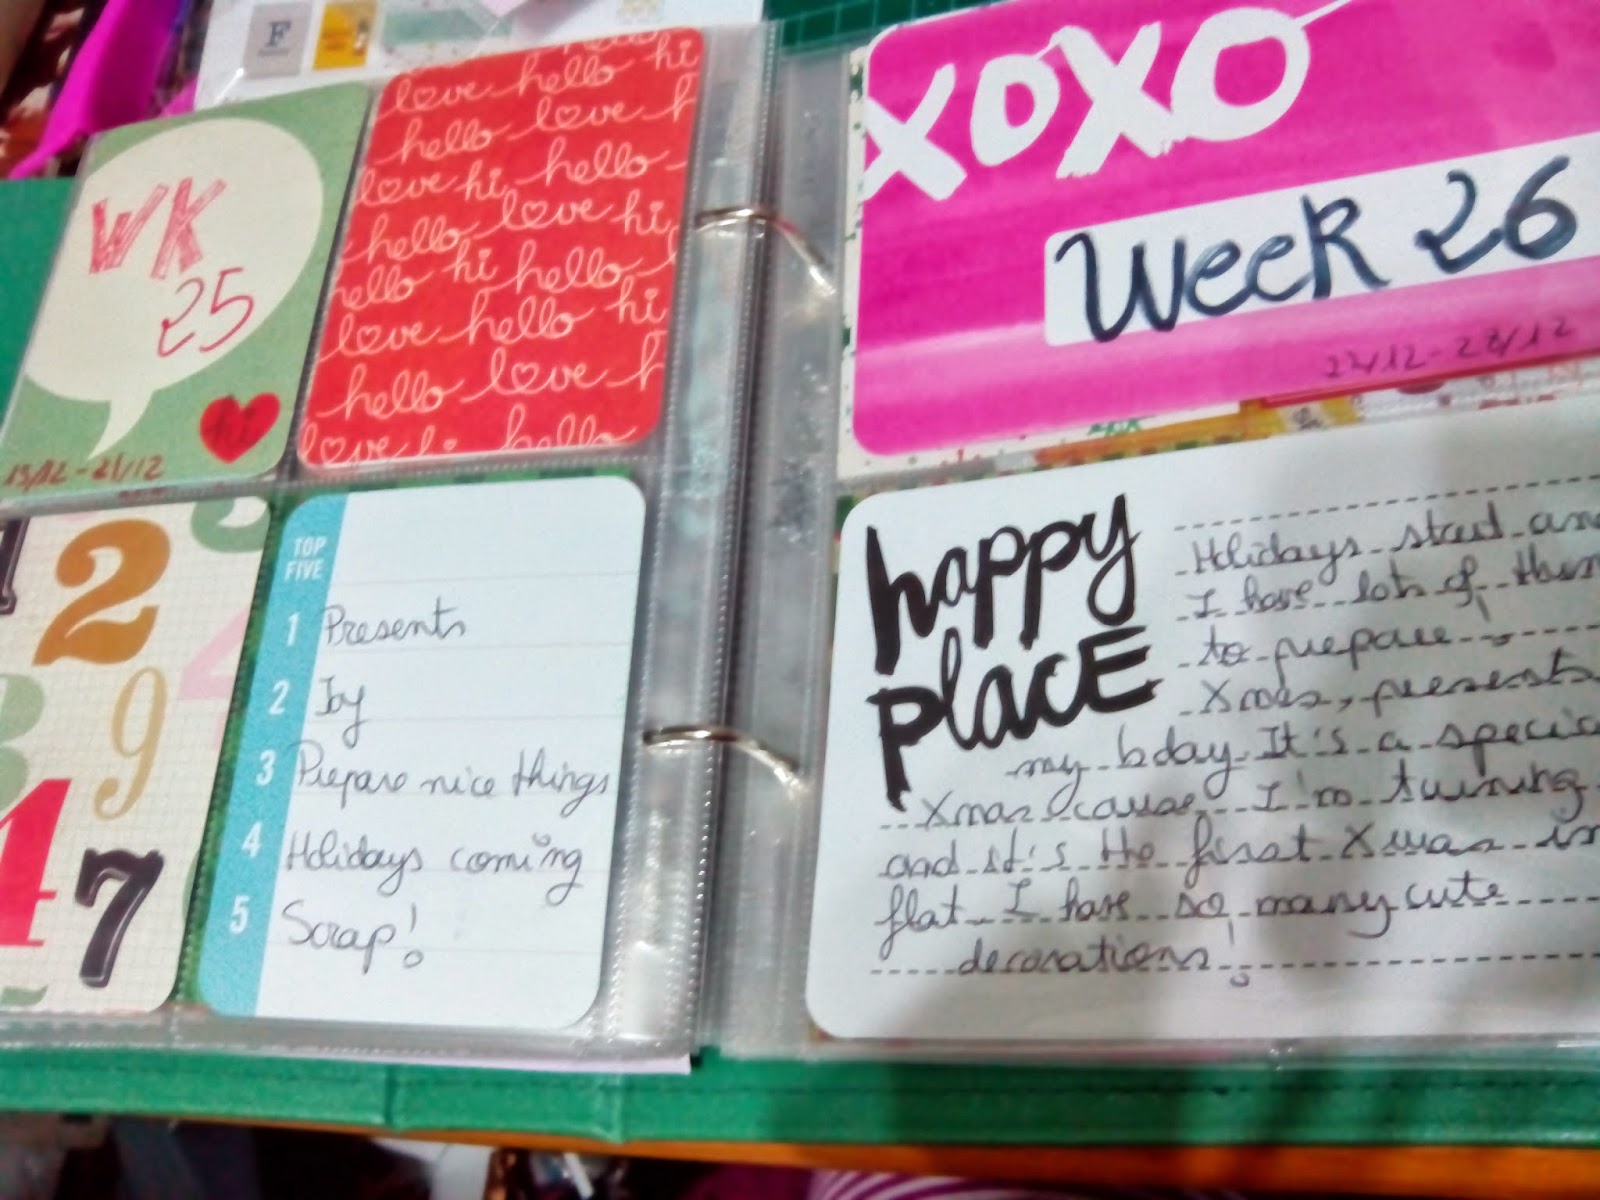 F
WK
25
hi
15/12-21/12
love hello hi
hello love h
love hi hello
hello love hi
hello hi hello
love hello hi
hello love h
love hi hello
2
9
4
7
TOP
FIVE
1 Presents
2 Joy
3 Prepare nice things
4 Holidays coming
5 Scrap!
XOXO
Week 26
22/12-28/12
happy
place
Holidays start an
I have lots of
to prepare!
Xmas, presents
my bday. It's a specia
Xmas cause I'm turning
and it's the first Xmas in
flat. I have so many cute
decorations!